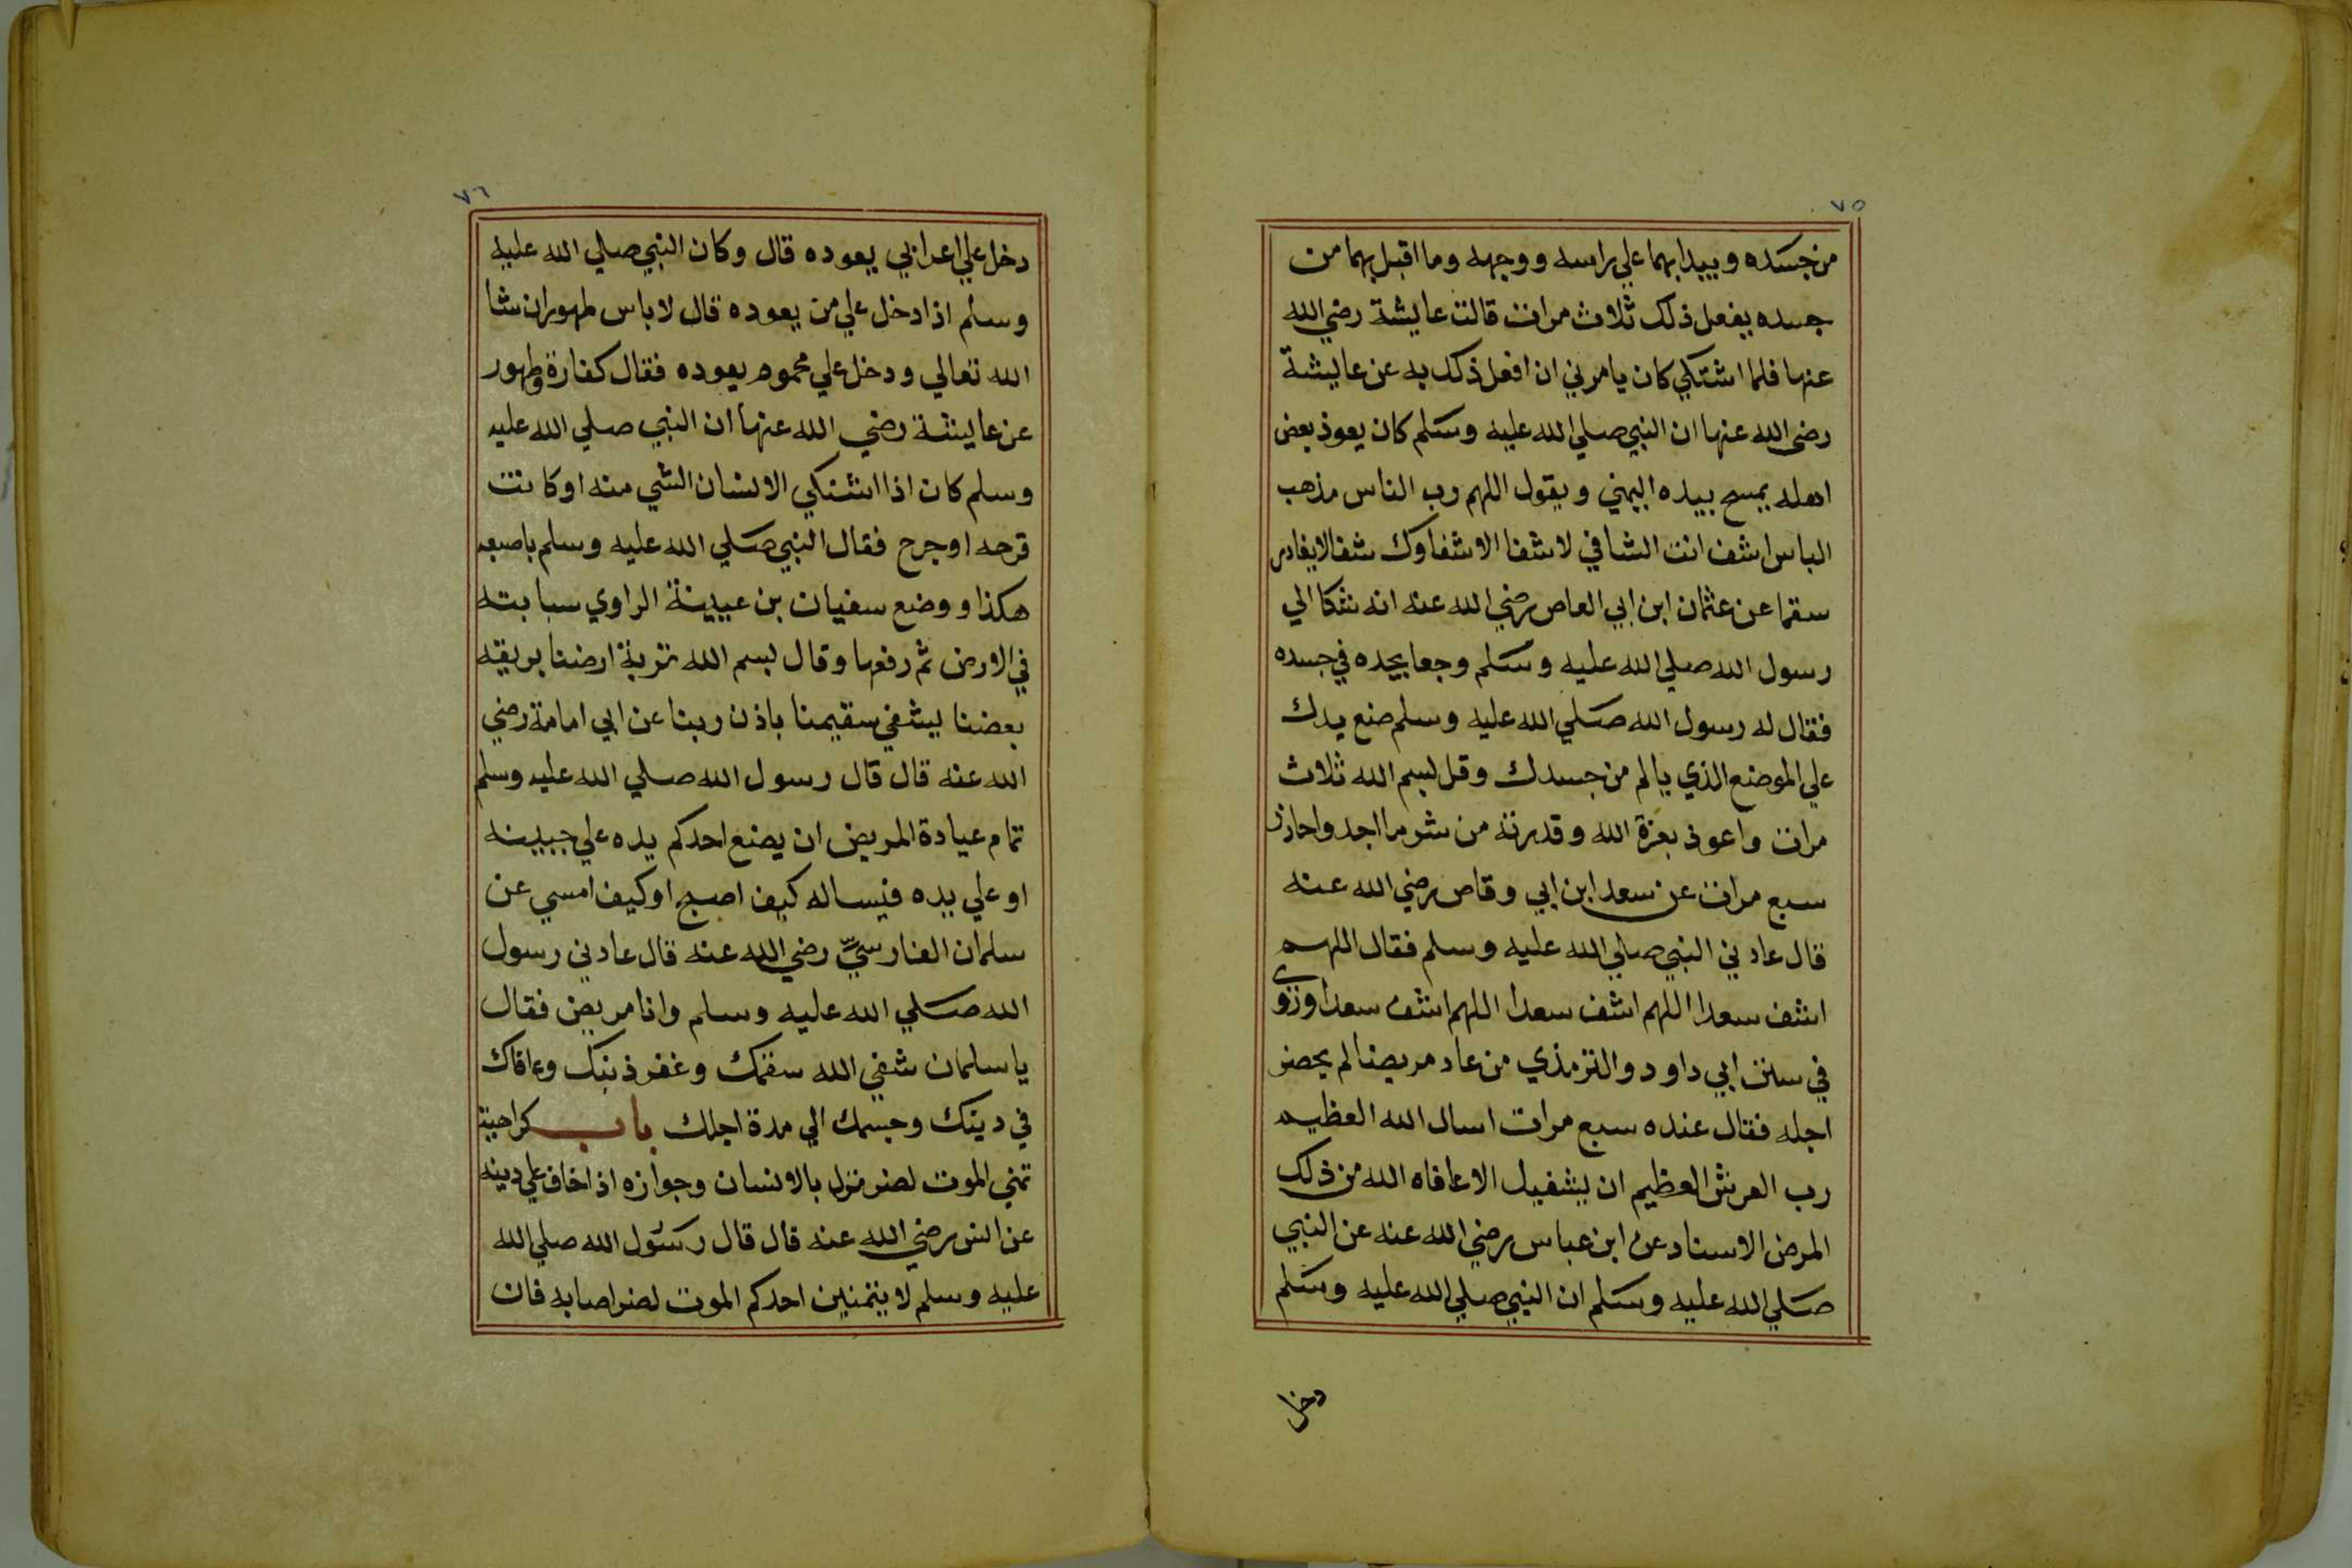 ٧٥
من جسده ويبدا بهما علي راسه ووجهه وما اقبل بهما من
جسده يفعل ذلك ثلاث مرات قالت عايشة رضي الله
عنها فلما اشتكي كان يامرني ان افعل ذلك به عن عايشة
رضى الله عنها ان النبي صلي الله عليه وسلم كان يعوذ بعض
اهله يمسح بيده اليمني ويقول اللهم رب الناس مذهب
الباس اشف انت الشافي لا شفا الا شفاوك شفا لا يغادر
سقما عن عثمان ابن ابي العاص رضي الله عنه انه شكا الي
رسول الله صلي الله عليه وسلم وجعا يجده في جسده
فقال له رسول الله صلي الله عليه وسلم ضع يدك
علي الموضع الذي يالم من جسدك وقل بسم الله ثلاث
مرات واعوذ بعزة الله وقدرته من شر ما اجد واحاذر
سبع مرات عن سعد ابن ابي وقاص رضي الله عنه
قال عادني النبي صلي الله عليه وسلم فقال اللهم
اشف سعدا اللهم اشف سعدا اللهم اشف سعدا وروى
في سنن ابي داود والترمذي من عاد مريضا لم يحضر
اجله فقال عنده سبع مرات اسال الله العظيم
رب العرش العظيم ان يشفيك الا عافاه الله من ذلك
المرض الاسناد عن ابن عباس رضي الله عنه عن النبي
صلي الله عليه وسلم ان النبي صلي الله عليه وسلم
دخل
٧٦
دخل علي اعرابي يعوده قال وكان النبي صلي الله عليه
وسلم اذا دخل علي من يعوده قال لا باس طهور ان شا
الله تعالي ودخل علي محموم يعوده فقال كفارة وطهور
عن عايشة رضي الله عنها ان النبي صلي الله عليه
وسلم كان اذا اشتكي الانسان الشي منه او كانت
قرحه او جرح فقال النبي صلي الله عليه وسلم باصبعه
هكذا ووضع سفيان بن عيينة الراوي سبابته
في الارض ثم رفعها وقال بسم الله تربة ارضنا بريقه
بعضنا يشفي سقيمنا باذن ربنا عن ابي امامة رضي
الله عنه قال قال رسول الله صلي الله عليه وسلم
تمام عيادة المريض ان يضع احدكم يده علي جبينه
او علي يده فيساله كيف اصبح او كيف امسي عن
سلمان الفارسيّ رضي الله عنه قال عادني رسول
الله صلي الله عليه وسلم وانا مريض فقال
يا سلمان شفي الله سقمك وغفر ذنبك وعافاك
في دينك وجسمك الي مدة اجلك باب كراهية
تمني الموت لضر نزل بالانسان وجوازه اذا خاف علي دينه
عن انس رضي الله عنه قال قال رسول الله صلي الله
عليه وسلم لا يتمنين احدكم الموت لضر اصابه فان